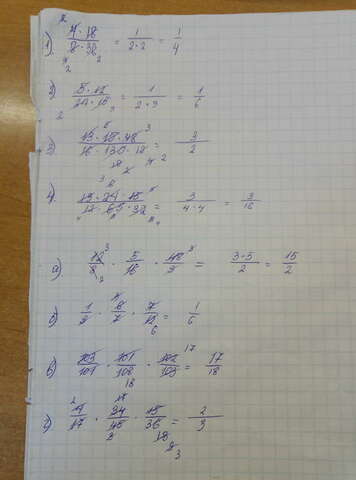 1) 4·18/8·36 = 1/2·2 = 1/4
2) 5·12/24·15 = 1/2·3 = 1/6
3) 13·15·48/16·130·12 = 3/2
4) 13·24·15/12·65·32 = 3/4·4 = 3/16
а) 12/8 · 5/16 · 48/3 = 3·5/2 = 15/2
б) · 7/12 = 1/6
в) 103/101 · 101/108 · 102/103 = 17/18
г) · 34/45 · 15/36 = 2/3